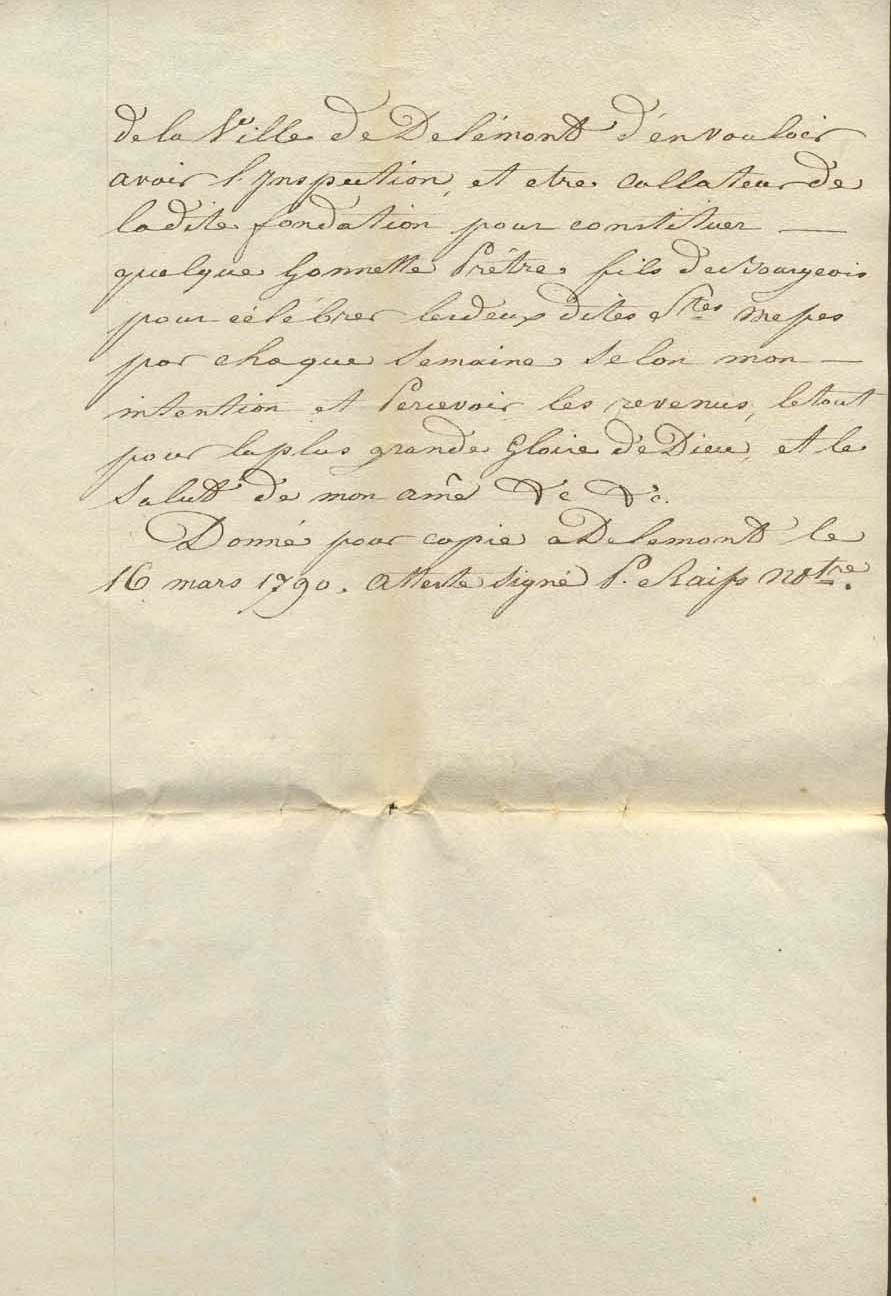 de la Ville de Delémont d'en vouloir
avoir l'Inspection, et etre Collateur de
ladite fondation pour constituer —
quelque honnette Prêtre fils de Bourgeois
pour célébrer les deux dites Stes messes
par chaque Semaine Selon mon —
intention et Percevoir les revenus, le tout
pour la plus grande Gloire de Dieu, et le
Salut de mon amê &c &c.
Donné pour copie a Delemont le
16 mars 1790. atteste signé P. Raiss notre.